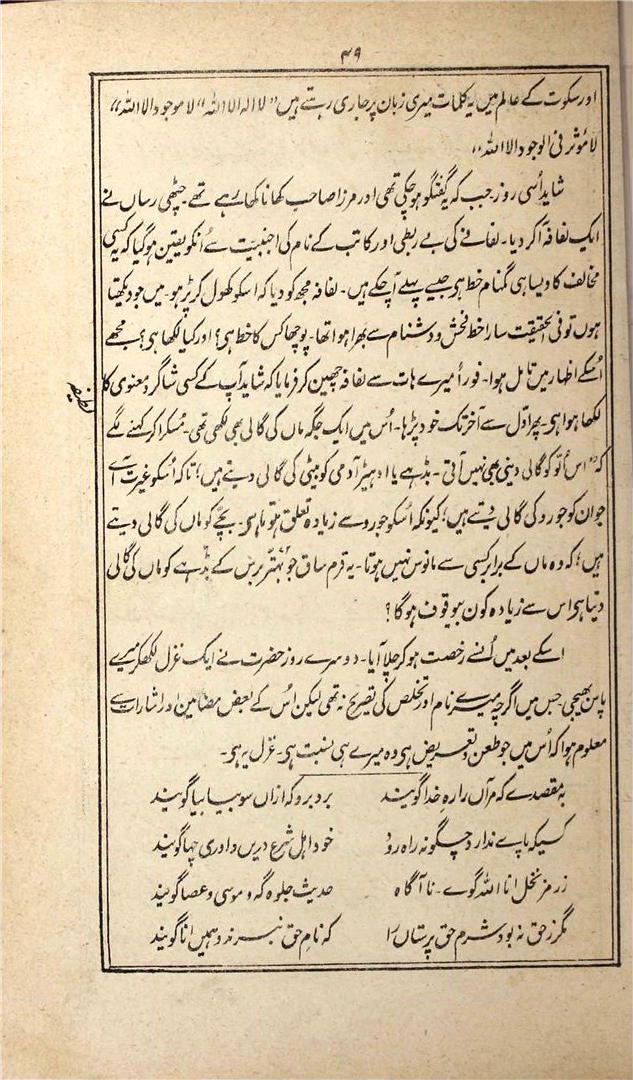 ۴۹
اور سکوت کے عالم میں یہ کلمات میری زبان پر جاری رہتے ہیں "لا الہ الا اللہ" لا موجود الا اللہ"
لا موثر فی الوجود الا اللہ"
شاید اُسی روز جب کہ یہ گفتگو ہو چکی تھی اور مرزا صاحب کھانا کھا رہے تھے۔ چٹھی رساں نے
ایک لفافہ آکر دیا۔ لفافے کی بے ربطی اور کاتب کے نام کی اجنبیت سے اُنکو یقین ہو گیا کہ یہ کسی
مخالف کا ویسا ہی گمنام خط ہی جیسے پہلے آچکے ہیں۔ لفافہ مجھ کو دیا کہ اسکو کھول کر پڑہو۔ میں جو دیکھتا
ہوں تو فی الحقیقت سارا خط فحش و دشنام سے بھرا ہوا تھا۔ پوچھا کس کا خط ہی؟ اور کیا لکھا ہی؟ مجھے
اُسکے اظہار میں تامل ہوا۔ فوراً میرے ہات سے لفافہ چھین کر فرمایا کہ شاید آپ کے کسی شاگرد معنوی کا
لکھا ہوا ہی۔ پھر اوّل سے آخر تک خود پڑھا۔ اُس میں ایک جگہ ماں کی گالی بھی لکھی تھی۔ مُسکرا کر کہنے لگے
کہ "اس اُلّو کو گالی دینی بھی نہیں آتی۔ بڈھے یا ادہیڑ آدمی کو بیٹی کی گالی دیتے ہیں؛ تاکہ اُسکو غیرت آے
جوان کو جورو کی گالی دیتے ہیں؛ کیونکہ اُسکو جورو سے زیادہ تعلق ہوتا ہی۔ بچّے کو ماں کی گالی دیتے
ہیں؛ کہ وہ ماں کے برابر کسی سے مانوس نہیں ہوتا۔ یہ قرمساق جو بہتّر ۷۲ برس کے بڈھے کو ماں کی گالی
دیتا ہی اس سے زیادہ کون بیوقوف ہوگا؟
اسکے بعد میں اُنسے رخصت ہو کر چلا آیا۔ دوسرے روز حضرت نے ایک غزل لکھکر میرے
پاس بھیجی جس میں اگرچہ میرے نام اور تخلص کی تصریح نہ تھی لیکن اُس کے بعض مضامین اور اشارات سے
معلوم ہوا کہ اُس میں جو طعن و تعریض ہی وہ میرے ہی نسبت ہی۔ غزل یہ ہی۔
بہ مقصدے کہ مرآں را رہِ خدا گویند برو برو کہ ازاں سو بیا بیا گویند
کسیکہ پاے ندارد چگونہ راہ رود خود اہل شرع دریں داوری چہا گویند
زرمز نخل انا اللہ گوے۔ نا آگاہ حدیث جلوہ گہ و موسی و عصا گویند
مگر ز حق نہ بود شرم حق پرستاں را کہ نامِ حق نبرند و ہمیں انا گویند